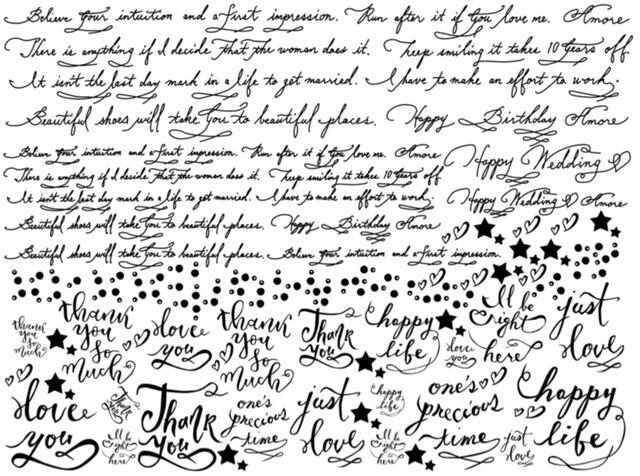 Believe your intuition and a first impression. Run after it if you love me. Amore
There is anything if I decide that the woman does it. Keep smiling it takes 10 years off.
It isn't the last day mark in a life to get married. I have to make an effort to work.
Beautiful shoes will take you to beautiful places. Happy Birthday Amore
Believe your intuition and a first impression. Run after it if you love me. Amore
Happy Wedding
There is anything if I decide that the woman does it. Keep smiling it takes 10 years off
It isn't the last day mark in a life to get married. I have to make an effort to work.
Happy Wedding Amore
Beautiful shoes will take you to beautiful places. Happy Birthday Amore
Beautiful shoes will take you to beautiful places. Believe your intuition and a first impression.
thank
you
so
much
thank
you
so
much
love
you
thank
you
so
much
Thank
you
happy
life
love
you
I'll be
right
here
just
love
love
you
Thank
you
I'll be
right
here
Thank
you
one's
precious
time
just
love
happy
life
I'll be
right
here
one's
precious
time
just
love
happy
life